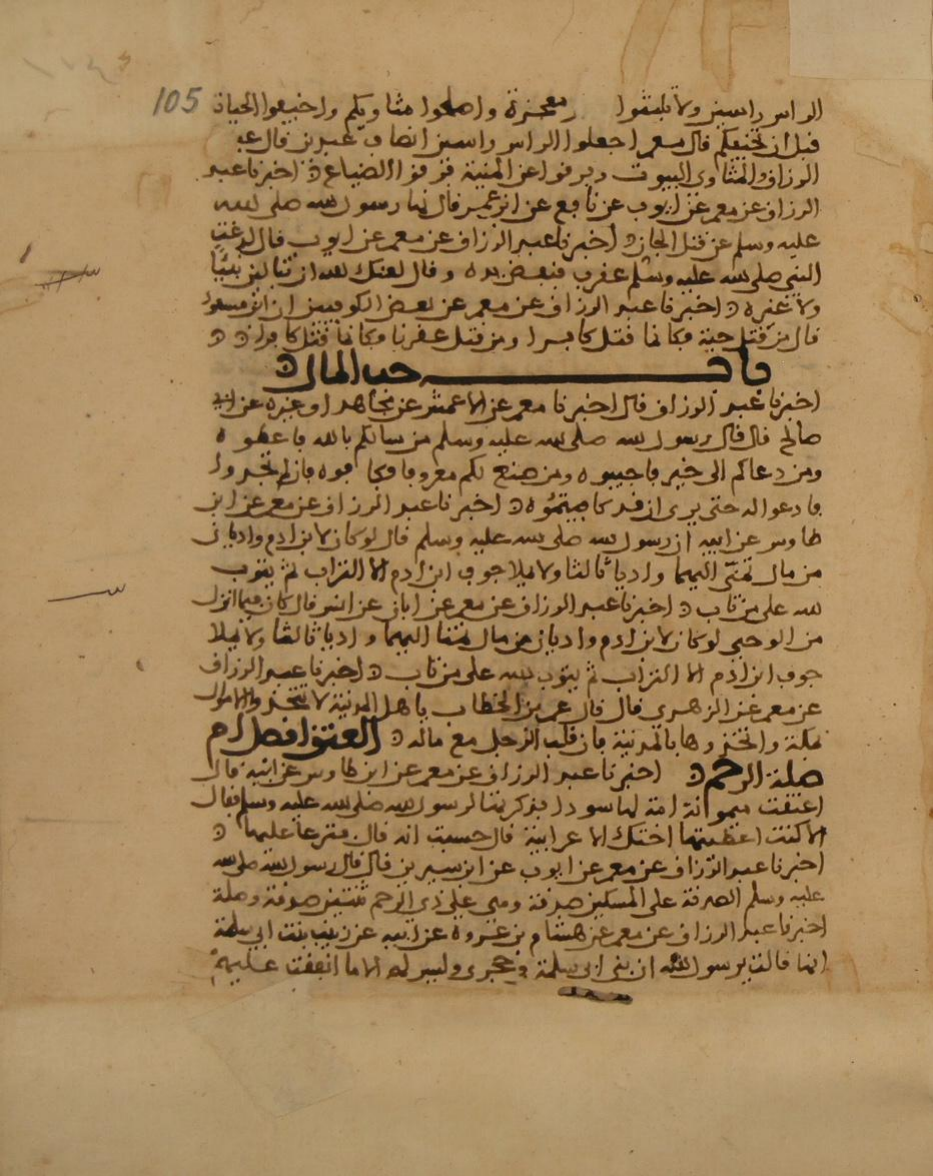 105
الراس راسين ولا تلبثوا بدار معجزة واصلحوا مثاويكم واخيفوا الحيات
قبل ان تخيفكم قال معمر اجعلوا الراس راسين قال عبد
الرزاق والمثاوى البيوت وفرقوا عن المنية فرقوا الضياع اخبرنا عبد
الرزاق عن معمر عن ايوب عن نافع عن ابن عمر قال نها رسول الله صلى الله
عليه وسلم عن قتل الجان اخبرنا عبد الرزاق عن معمر عن ايوب قال لدغت
النبي صلى الله عليه وسلم عقرب فنفض يده وقال لعنك الله ان تبالين نبيا
ولا غيره اخبرنا عبد الرزاق عن معمر عن بعض الكوفيين ان ابن مسعود
قال من قتل حية فكانما قتل كافرا ومن قتل عقربا فكانما قتل كافرا
باب حب المال
اخبرنا عبد الرزاق قال اخبرنا معمر عن الاعمش عن مجاهد او غيره عن ابي
صالح قال قال رسول الله صلى الله عليه وسلم من سالكم بالله فاعطوه
ومن دعاكم الى خير فاجيبوه ومن صنع لكم معروفا فكافوه فان لم تجدوا
فادعوا له حتى يرى ان قد كافيتموه اخبرنا عبد الرزاق عن معمر عن ابن
طاوس عن ابيه ان رسول الله صلى الله عليه وسلم قال لو كان لابن ادم واديان
من مال تمنى اليهما واديا ثالثا ولا يملا جوف ابن ادم الا التراب ثم يتوب
الله على من تاب اخبرنا عبد الرزاق عن معمر عن ابان عن انس قال كان فيما انزل
من الوحي لو كان لابن ادم واديان من مال تمنا اليهما واديا ثالثا ولا يملا
جوف ابن ادم الا التراب ثم يتوب الله على من تاب اخبرنا عبد الرزاق
عن معمر عن الزهري قال قال عمر بن الخطاب يا هل المدينة لا تتخذوا الاموال
بمكة واتخذوها بالمدينة فان قلب الرجل مع ماله العتق افضل ام
صلة الرحم اخبرنا عبد الرزاق عن معمر عن ابن طاوس عن ابيه قال
اعتقت ميمونة امة لها سودا فذكرتها لرسول الله صلى الله عليه وسلم فقال
الا كنت اعطيتها اختك الاعرابية قال حسبت انه قال فترعا عليها
اخبرنا عبد الرزاق عن معمر عن ايوب عن ابن سيرين قال قال رسول الله صلى الله
عليه وسلم الصدقة على المسكين صدقة وهي على ذي الرحم ثنتين صدقة وصلة
اخبرنا عبد الرزاق عن معمر عن هشام بن عروة عن ابيه عن زينب بنت ابي سلمة
انها قالت يرسول الله ان بني ابي سلمة في حجري وليس لهم الا ما انفقت عليهم